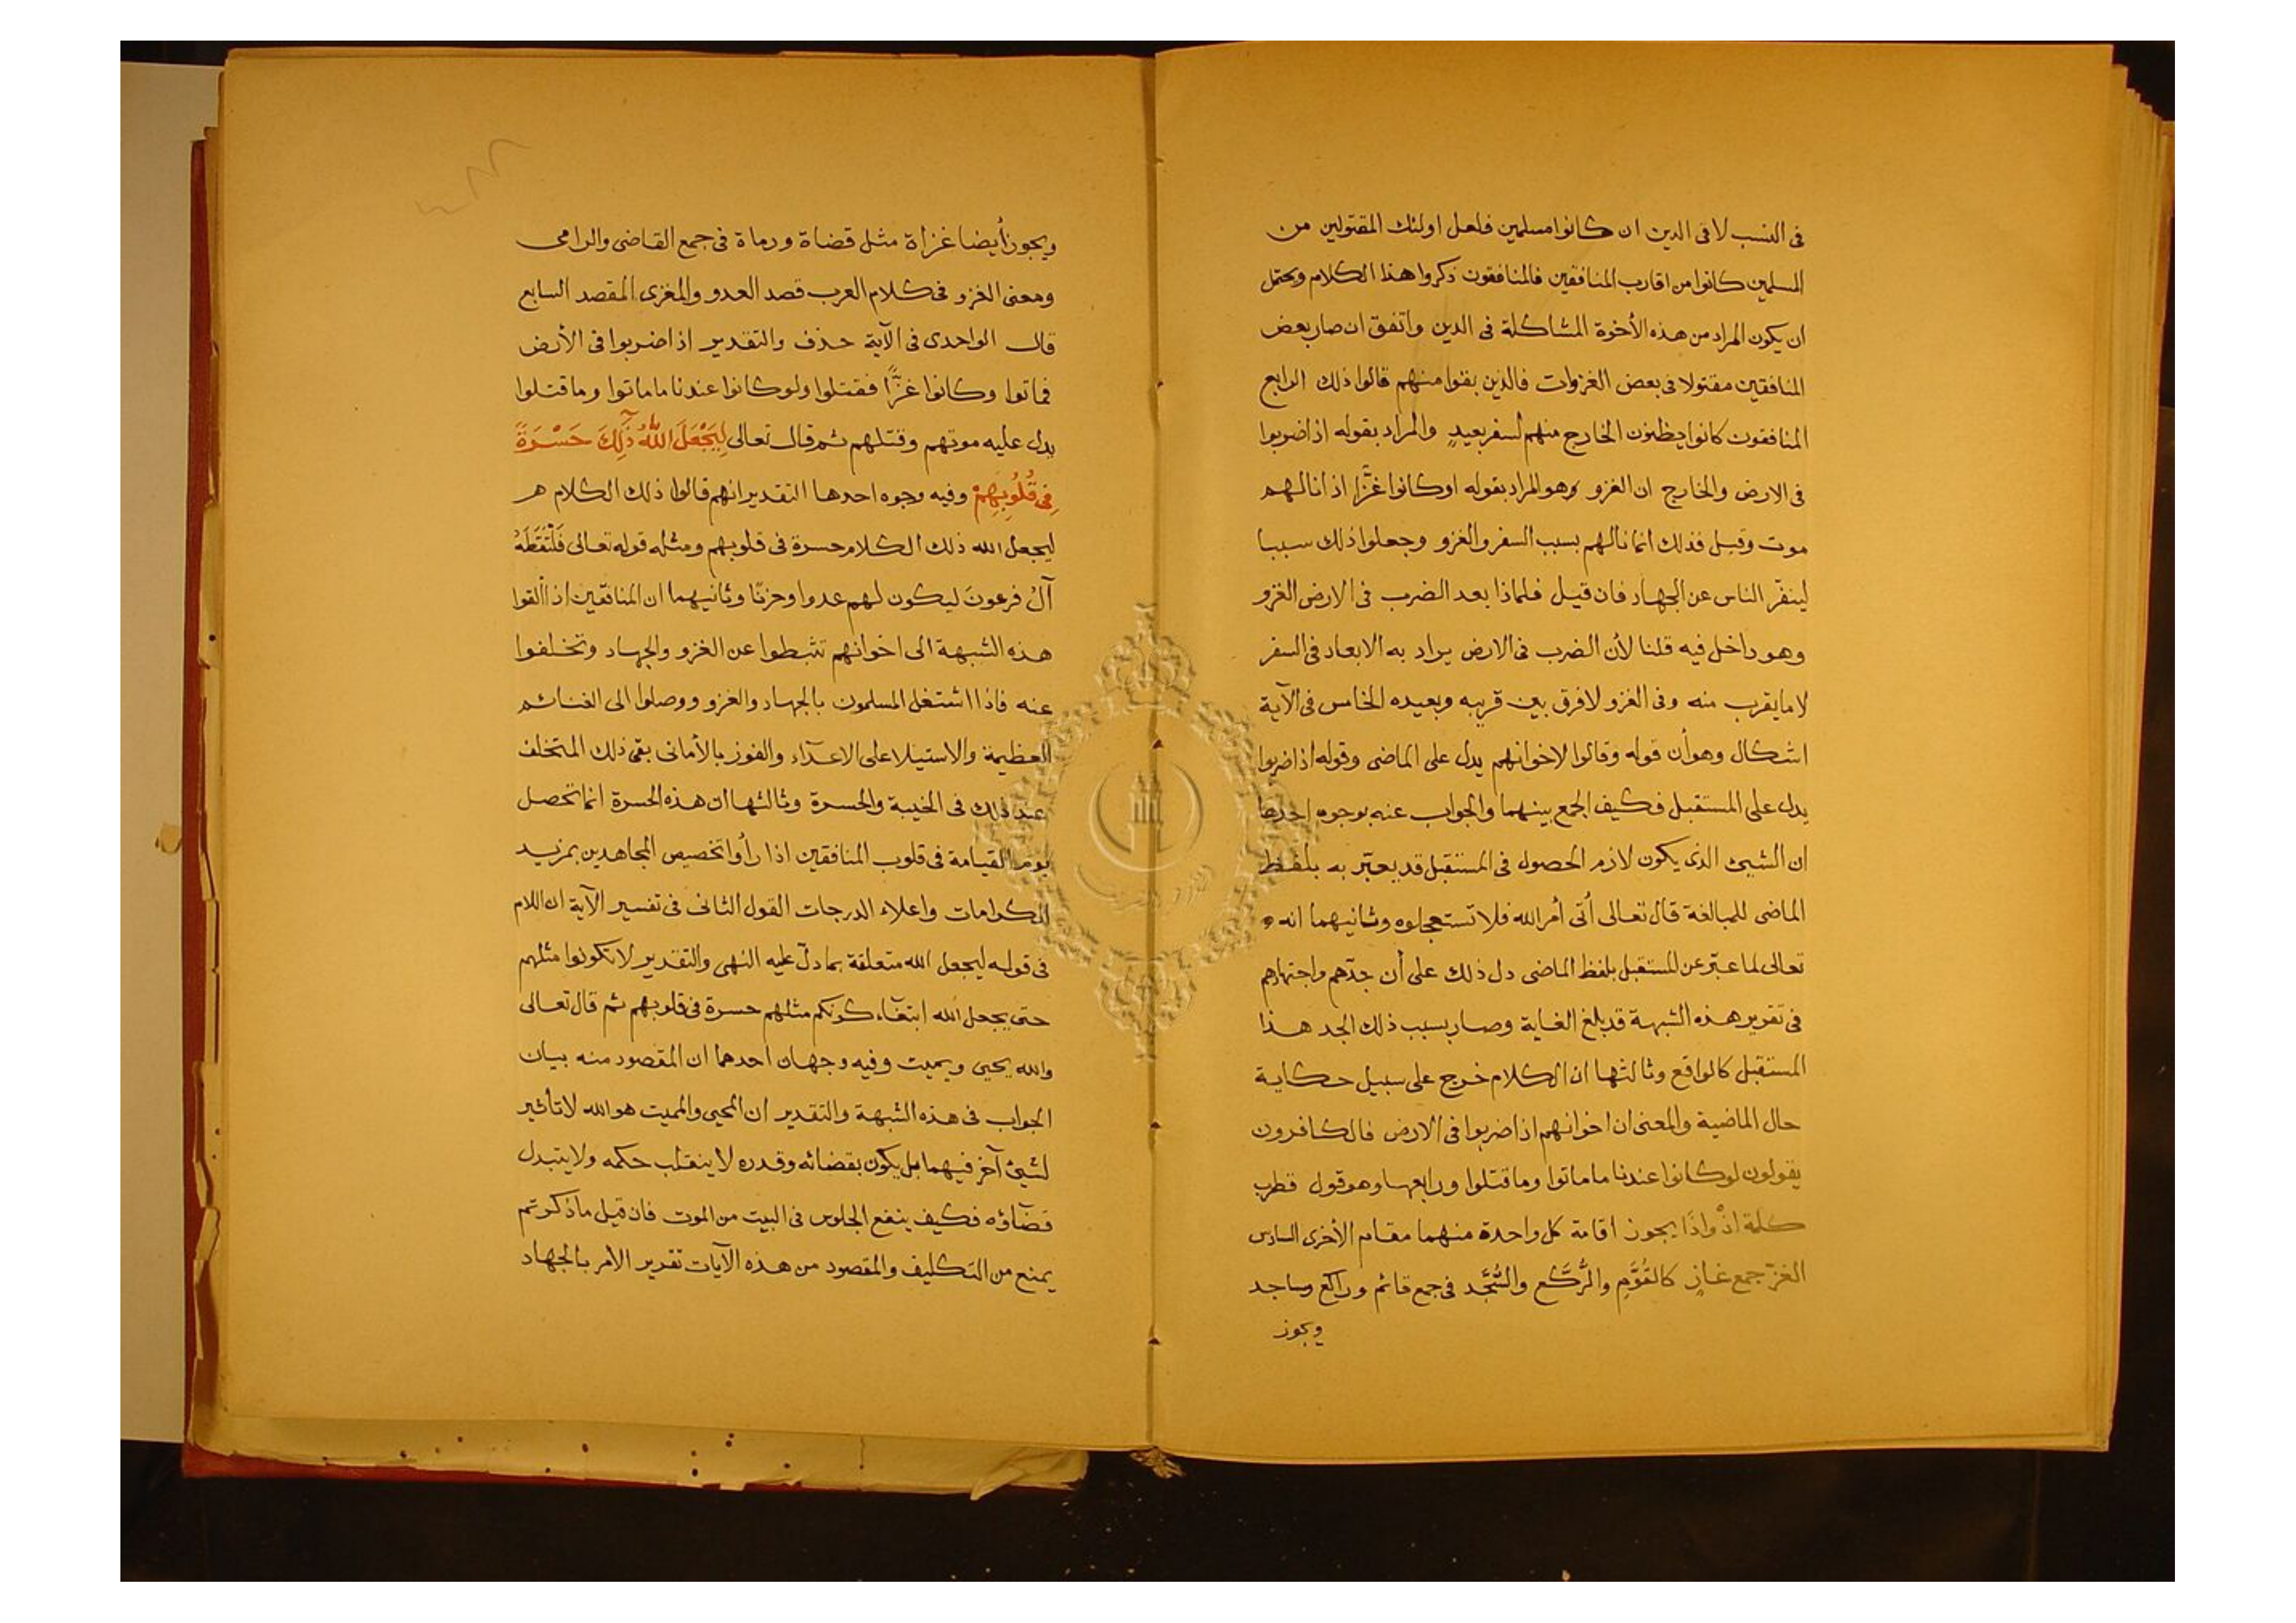 فى النسب لا فى الدين ان كانوا مسلمين فلعل اولئك المقتولين من
المسلمين كانوا من اقارب المنافقين فالمنافقون ذكروا هذا الكلام ويحتمل
ان يكون المراد من هذه الأخوة المشاكلة فى الدين واتفق ان صار بعض
المنافقين مقتولا فى بعض الغزوات فالذين بقوا منهم قالوا ذلك الرابع
المنافقون كانوا يظنون الخارج منهم لسفر بعيدٍ والمراد بقوله اذا ضربوا
فى الارض والخارج ان الغزو وهو المراد بقوله اوكانوا غزًّا اذا نالهم
موت وقتل فذلك انما نالهم بسبب السفر والغزو وجعلوا ذلك سببا
لينفّر الناس عن الجهاد فان قيل فلماذا بعد الضرب فى الارض الغزو
وهو داخل فيه قلنا لأن الضرب فى الارض يراد به الابعاد فى السفر
لا ما يقرب منه وفى الغزو لا فرق بين قريبه وبعيده الخامس فى الآية
اشكال وهو أن قوله وقالوا لاخوانهم يدل على الماضى وقوله اذا ضربوا
يدل على المستقبل فكيف الجمع بينهما والجواب عنه بوجوه احدها
ان الشيئ الذى يكون لازم الحصول فى المستقبل قد يعبّر به بلفظ
الماضى للمبالغة قال تعالى أتى أمر الله فلا تستعجلوه وثانيهما انه
تعالى لما عبّر عن المستقبل بلفظ الماضى دل ذلك على أن جدّهم واجتهادهم
فى تقرير هذه الشبهة قد بلغ الغاية وصار بسبب ذلك الجد هذا
المستقبل كالواقع وثالثها ان الكلام خرج على سبيل حكاية
حال الماضية والمعنى ان اخوانهم اذا ضربوا فى الارض فالكافرون
يقولون لوكانوا عندنا ما ماتوا وما قتلوا ورابعها وهو قول قطرب
كلمة اذْ واذَا يجوز اقامة كل واحدة منهما مقام الأخرى السادس
الغزّ جمع غازٍ كالقُوَّم والرُّكَّع والسُّجَّد فى جمع قائم وراكع وساجد
ويجوز
ويجوز أيضا غزاة مثل قضاة ورماة فى جمع القاضى والرامى
ومعنى الغزو فى كلام العرب قصد العدو والمغزى المقصد السابع
قال الواحدى فى الآية حذف والتقدير اذا ضربوا فى الأرض
فماتوا وكانوا غزًّا فقتلوا ولوكانوا عندنا ما ماتوا وما قتلوا
يدل عليه موتهم وقتلهم ثم قال تعالى لِيَجْعَلَ اللَّهُ ذَٰلِكَ حَسْرَةً
فِى قُلُوبِهِمْ وفيه وجوه احدها التقدير انهم قالوا ذلك الكلام
ليجعل الله ذلك الكلام حسرة فى قلوبهم ومثله قوله تعالى فَلْتَقَطَهُ
آلُ فرعونَ ليكون لهم عدوا وحزنًا وثانيهما ان المنافقين اذا ألقوا
هذه الشبهة الى اخوانهم تثبطوا عن الغزو والجهاد وتخلفوا
عنه فاذا اشتغل المسلمون بالجهاد والغزو ووصلوا الى الغنائم
العظيمة والاستيلا على الاعدآء والفوز بالأمانى بقى ذلك المتخلف
عند ذلك فى الخيبة والحسرة وثالثها ان هذه الحسرة انما تحصل
يوم القيامة فى قلوب المنافقين اذا رأوا تخصيص المجاهدين بمزيد
الكرامات واعلاء الدرجات القول الثانى فى تفسير الآية ان اللام
فى قوله ليجعل الله متعلقة بما دلّ عليه النهى والتقدير لا تكونوا مثلهم
حتى يجعل الله ابتغآء كونكم مثلهم حسرة فى قلوبهم ثم قال تعالى
والله يحيى ويميت وفيه وجهان احدهما ان المقصود منه بيان
الجواب فى هذه الشبهة والتقدير ان المحيى والمميت هو الله لا تأثير
لشيئ آخر فيهما بل يكون بقضائه وقدره لا ينقلب حكمه ولا يتبدل
قضآؤه فكيف ينفع الجلوس فى البيت من الموت فان قيل ما ذكرتم
يمنع من التكليف والمقصود من هذه الآيات تقدير الأمر بالجهاد